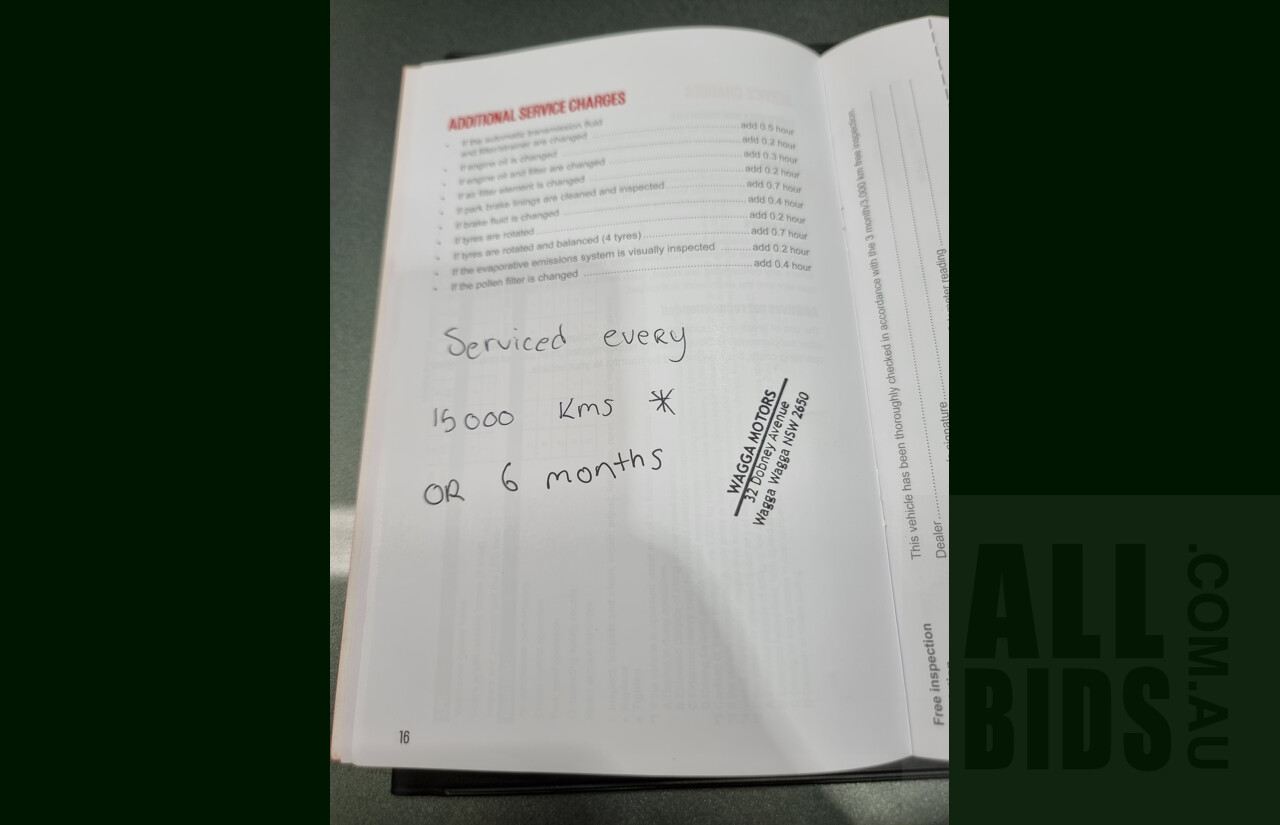 ADDITIONAL SERVICE CHARGES
- If the automatic transmission fluid
and filter/strainer are changed ........ add 0.5 hour
- If engine oil is changed ........ add 0.2 hour
- If engine oil and filter are changed ........ add 0.3 hour
- If air filter element is changed ........ add 0.2 hour
- If park brake linings are cleaned and inspected ........ add 0.7 hour
- If brake fluid is changed ........ add 0.4 hour
- If tyres are rotated ........ add 0.2 hour
- If tyres are rotated and balanced (4 tyres) ........ add 0.7 hour
- If the evaporative emissions system is visually inspected ........ add 0.2 hour
- If the pollen filter is changed ........ add 0.4 hour
Serviced every
15000 Kms *
OR 6 months
WAGGA MOTORS
32 Dobney Avenue
Wagga Wagga NSW 2650
16
This vehicle has been thoroughly checked in accordance with the 3 month/3,000 km free inspection.
Dealer
signature
reading
Free inspection
ALL
BIDS
.COM.AU